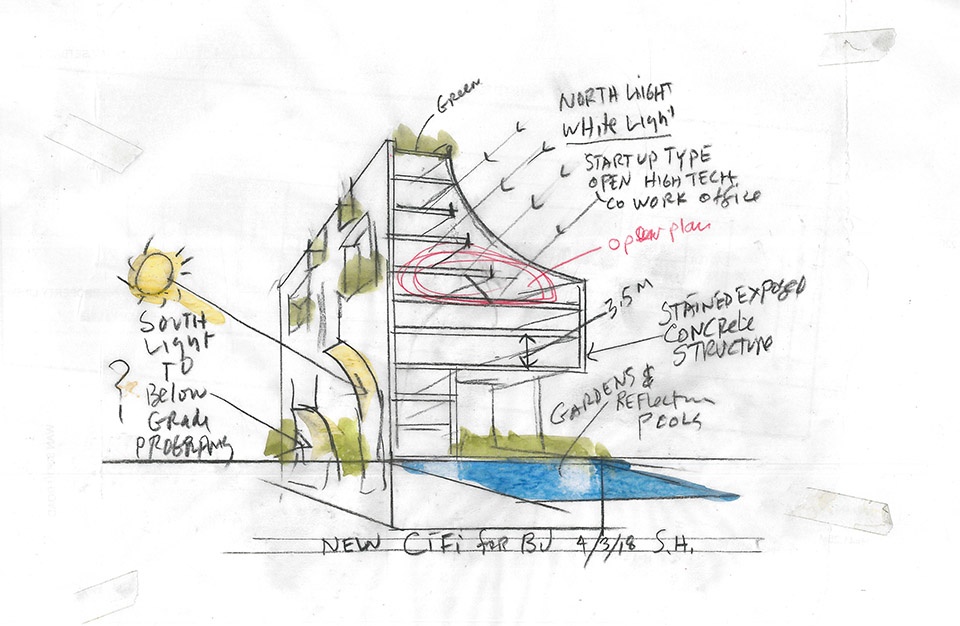 GREEN
NORTH LIGHT
WHITE LIGHT
STARTUP TYPE
OPEN HIGH TECH
CO WORK OFFICE
open plan
3.5 M
STAINED EXPOSED
CONCRETE
STRUCTURE
GARDENS &
REFLECTION
POOLS
SOUTH
LIGHT
TO
?
BELOW
GRADE
PROGRAMS
NEW CiFi for BU 4/3/18 S.H.